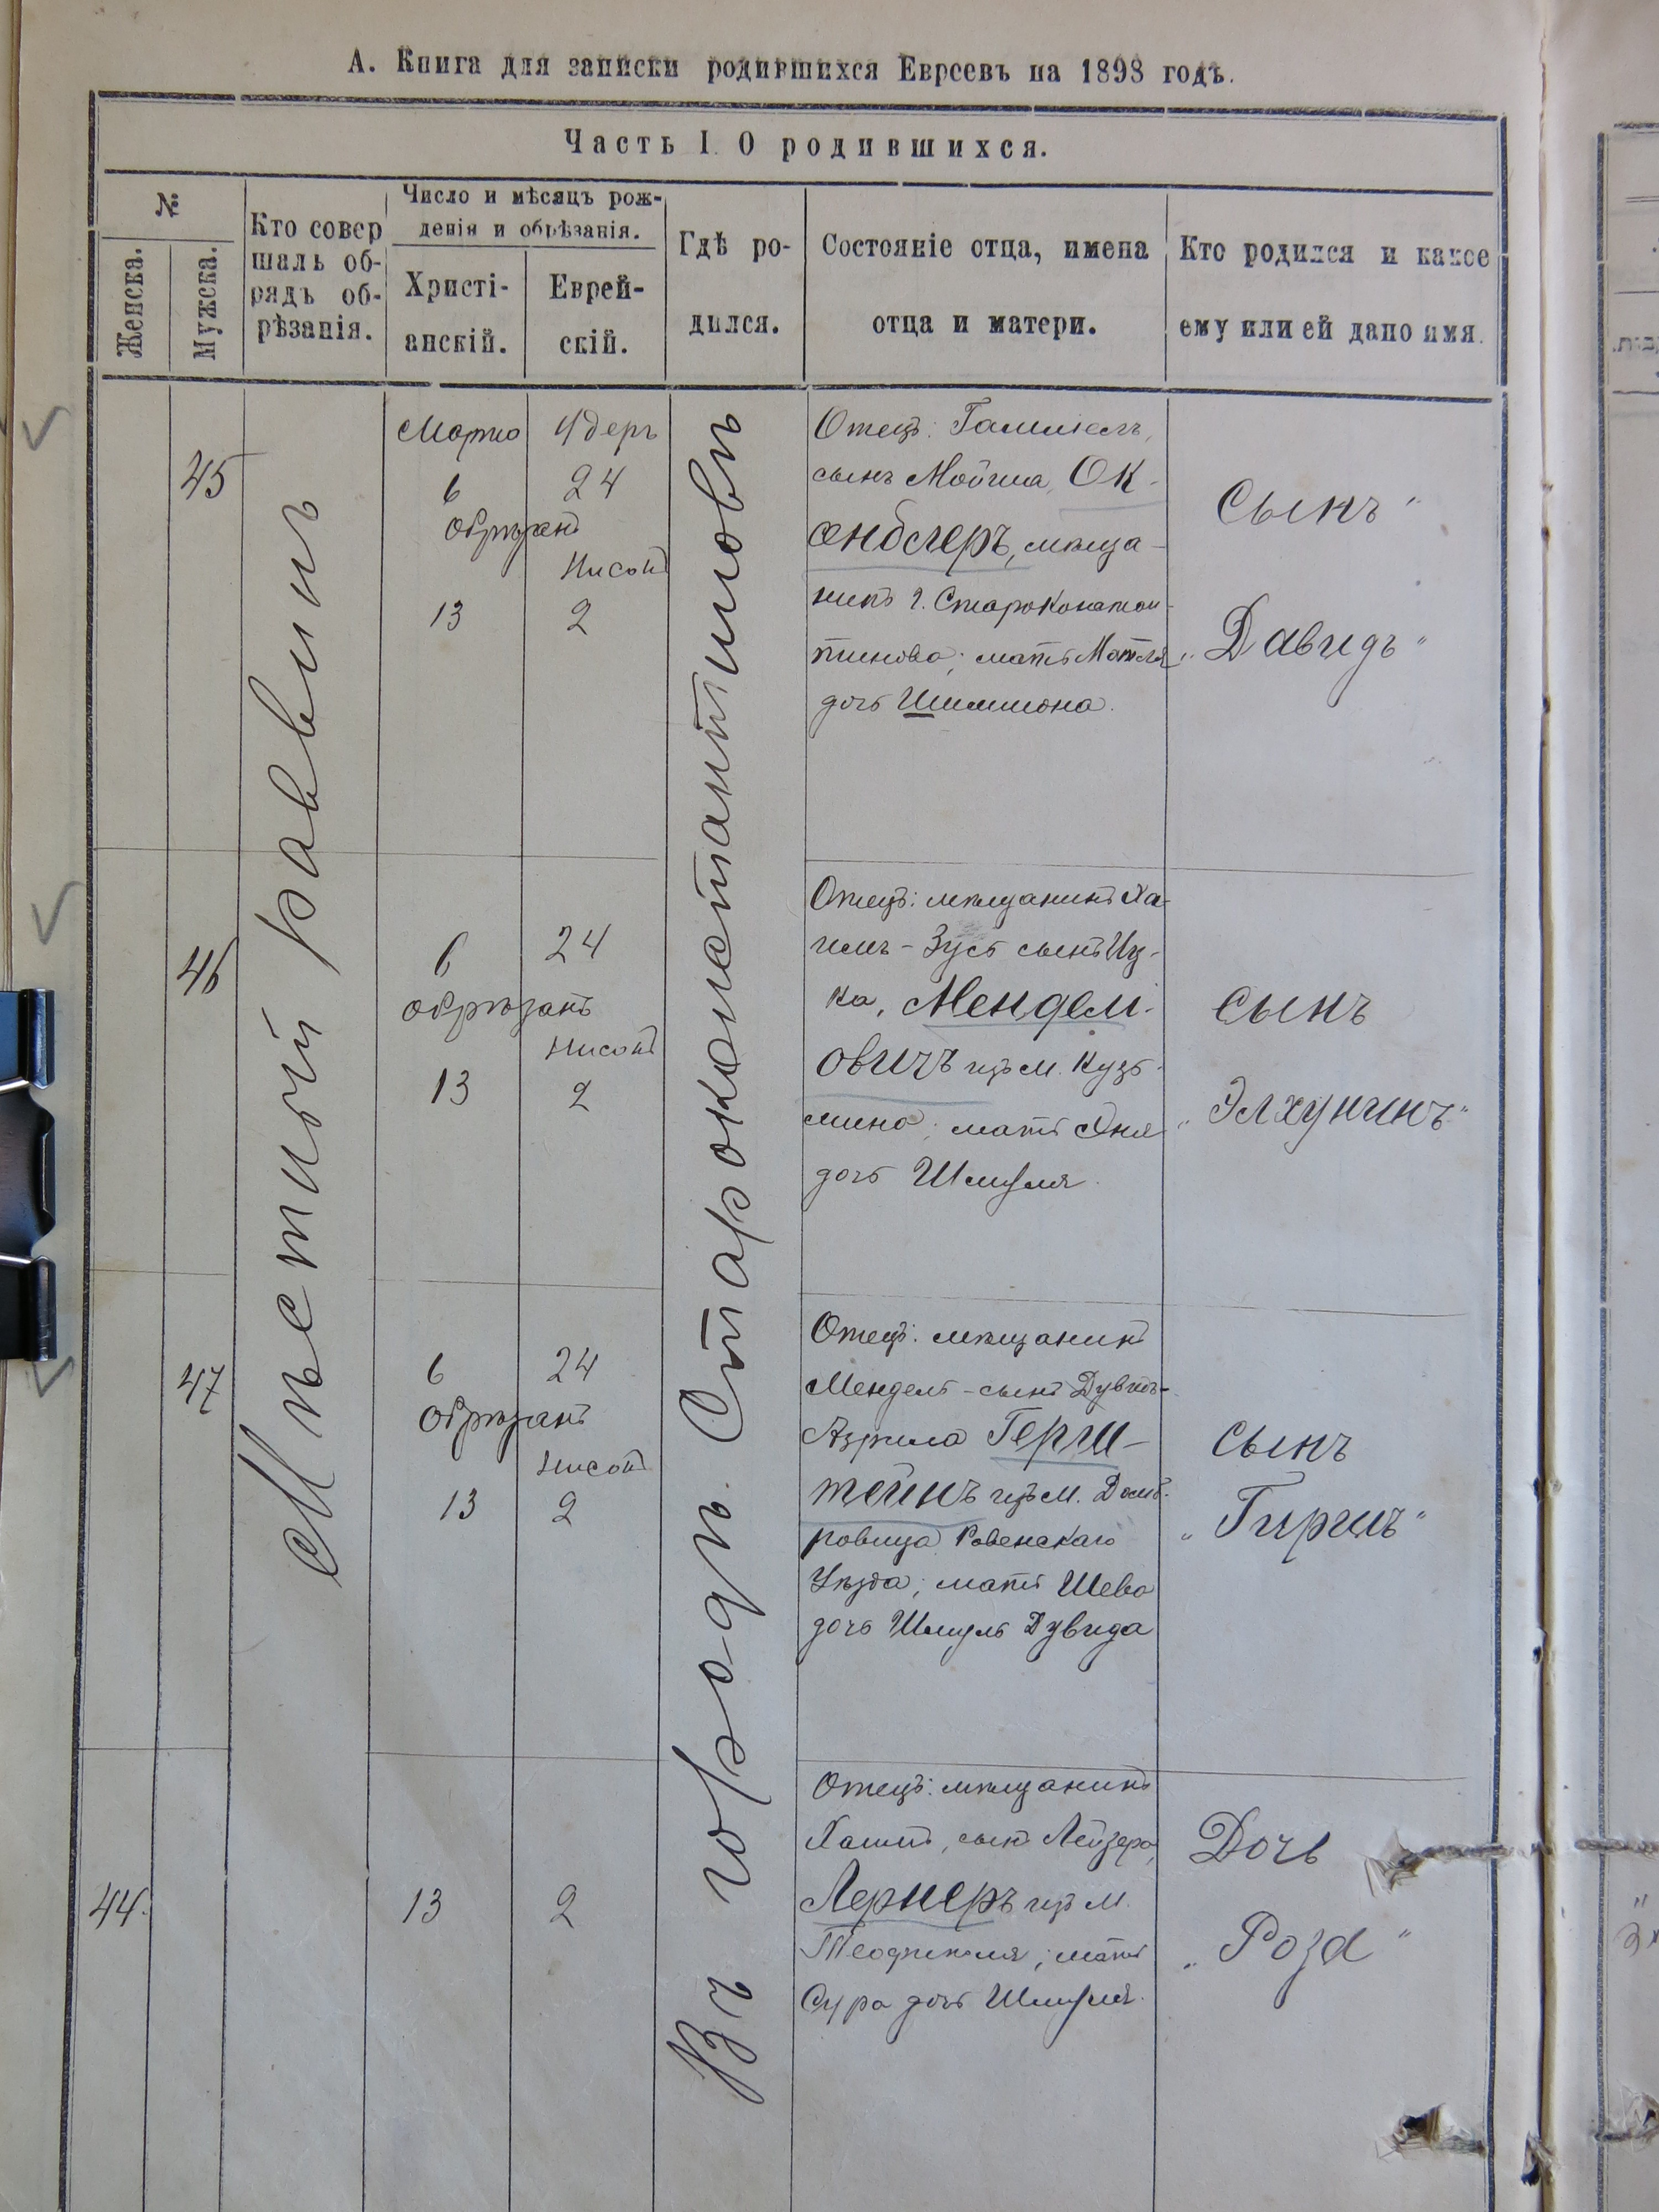 А. Книга для записки родившихся Евреевъ на 1898 годъ.
Часть I. О родившихся.
№
Женска.
Мужска.
Кто совер
шалъ об-
рядъ об-
рѣзанія.
Число и мѣсяцъ рож-
денія и обрѣзанія.
Христі-
анскій.
Еврей-
скій.
Гдѣ ро-
дился.
Состояніе отца, имена
отца и матери.
Кто родился и какое
ему или ей дано имя.
Мѣстный раввинъ
Въ городѣ Староконстантиновѣ
45
Марта
Адеръ
6
24
Обрѣзанъ
Нисонъ
13
2
Отецъ:
сынъ Мойша, Ок-
сенблеръ, мѣща-
нинъ г. Староконстан-
тинова; мать Мотля
дочь Шимшона.
Сынъ"
„Давидъ"
46
6
24
Обрѣзанъ
Нисонъ
13
2
Отецъ: мѣщанинъ Ха-
имъ-Зусь сынъ Иц-
ка, Мендел-
овичъ изъ м. Кузь-
мина; мать Хня
дочь Шмуля.
Сынъ
„Элхунинъ"
47
6
24
Обрѣзанъ
Нисонъ
13
2
Отецъ: мѣщанинъ
Мендель-сынъ Дувидъ-
Азрила Герш-
тейнъ изъ м. Домб-
ровица Ровенскаго
Уѣзда; мать Шева
дочь Шмуль Дувида
Сынъ
„Гиршъ"
44.
13
2
Отецъ: мѣщанинъ
Хаимъ, сынъ Лейзера,
Лернеръ изъ м.
Теофиполя; мать
Сура дочь Шмуля.
Дочь
„Роза"